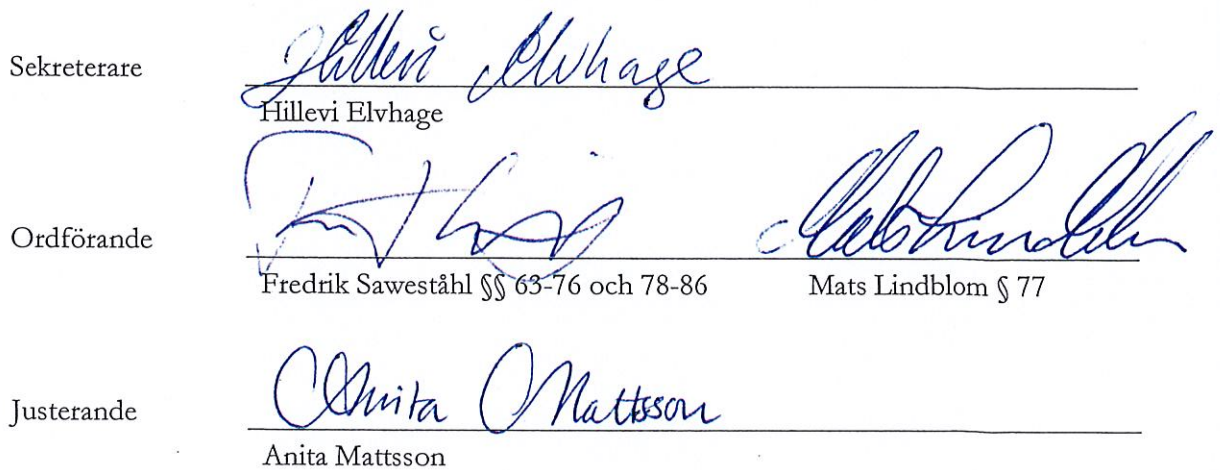 Sekreterare
Hillevi Elvhage
Hillevi Elvhage
Ordförande
Mats Lindblom
Fredrik Saweståhl §§ 63-76 och 78-86 Mats Lindblom § 77
Justerande
Anita Mattsson
Anita Mattsson